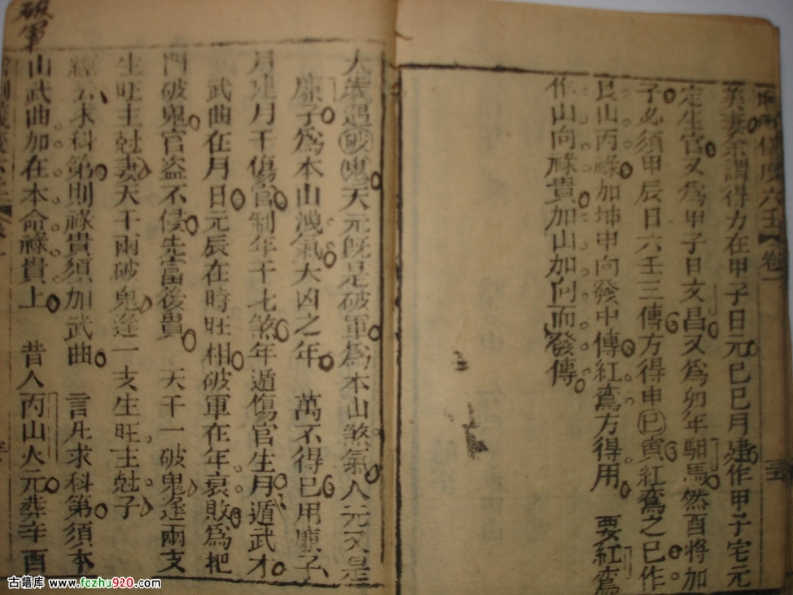 美妻命謂得力在甲子日元巳巳月建作甲子宅元
定生官又為甲子日文昌又為卯年馹馬然酉將加
子必須甲辰日六壬三傳方得申巳寅紅鸞之巳作
艮山丙祿加坤申向發中傳紅鸞方得用 要紅鸞
作山向祿貴加山加向而發傳
六壬 卷一
破軍
大歲遇破鬼天元既是破軍為本山煞氣人元又是
廉子為本山洩氣大凶之年 萬不得已用廉子
月建月干傷官制年干七煞年遁傷官生月遁武才
武曲在月日元辰在時旺相破軍在年衰敗為把
門破鬼官盜不侵先富後貴 天干一破鬼逢兩支
生旺主尅妻天干兩破鬼逢一支生旺主尅子
求科第則祿貴須加武曲 言凡求科第須本
山武曲加在本命祿貴上 昔人丙山火元葬辛酉
古籍库 www.fozhu920.com